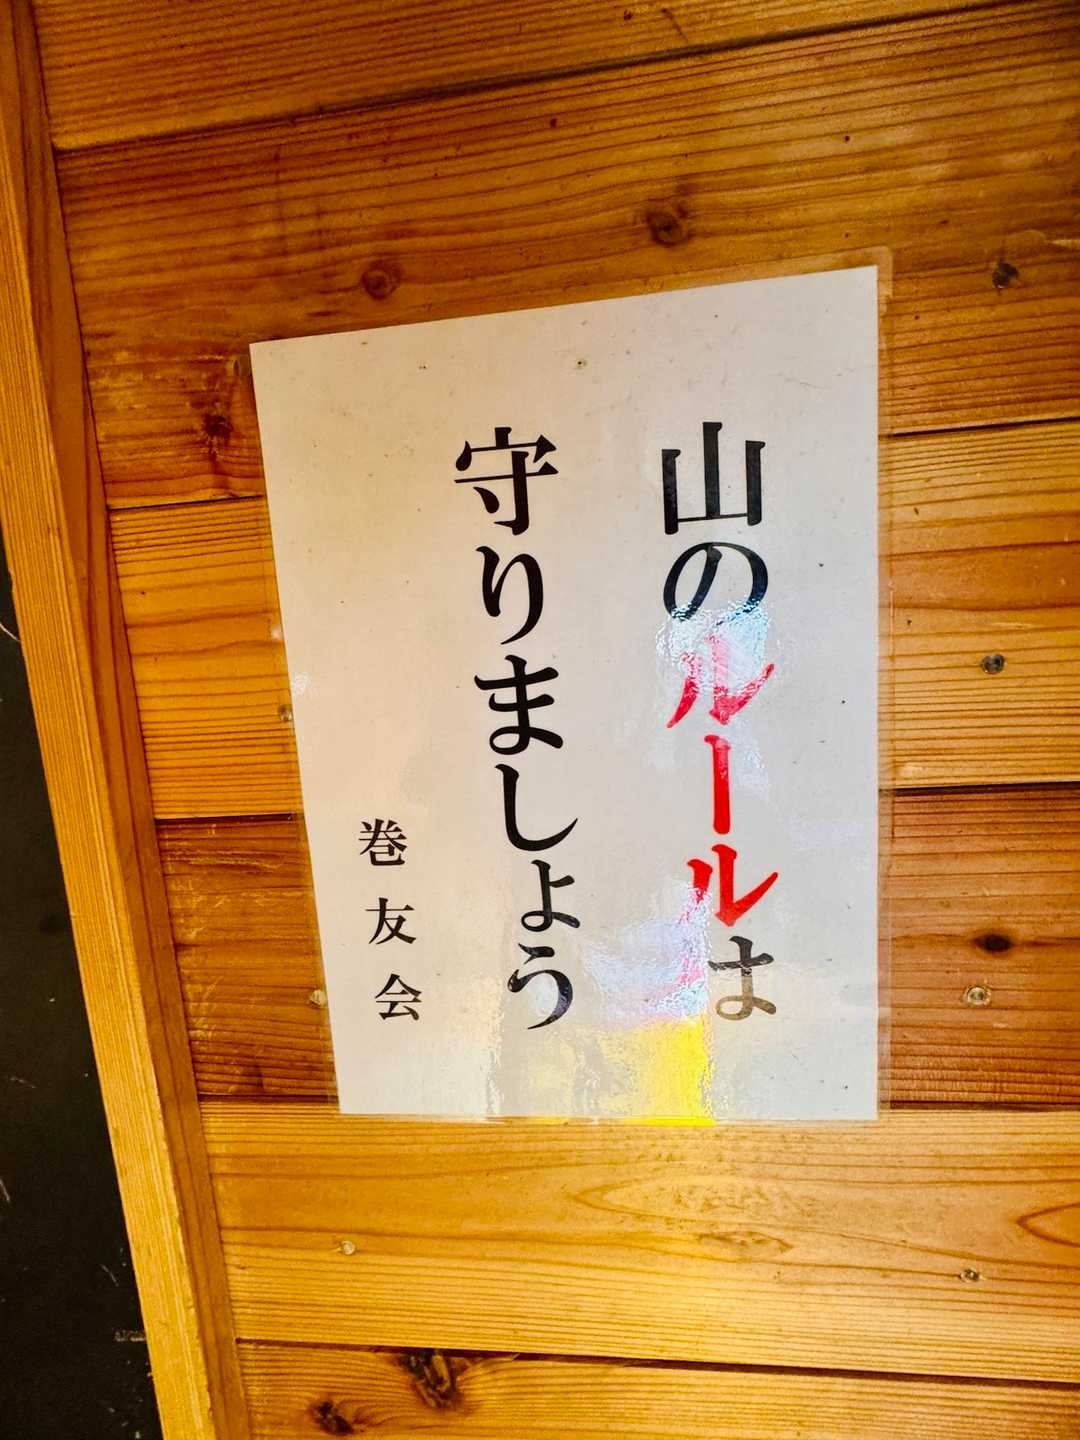 山のルールは
守りましょう
巻友会